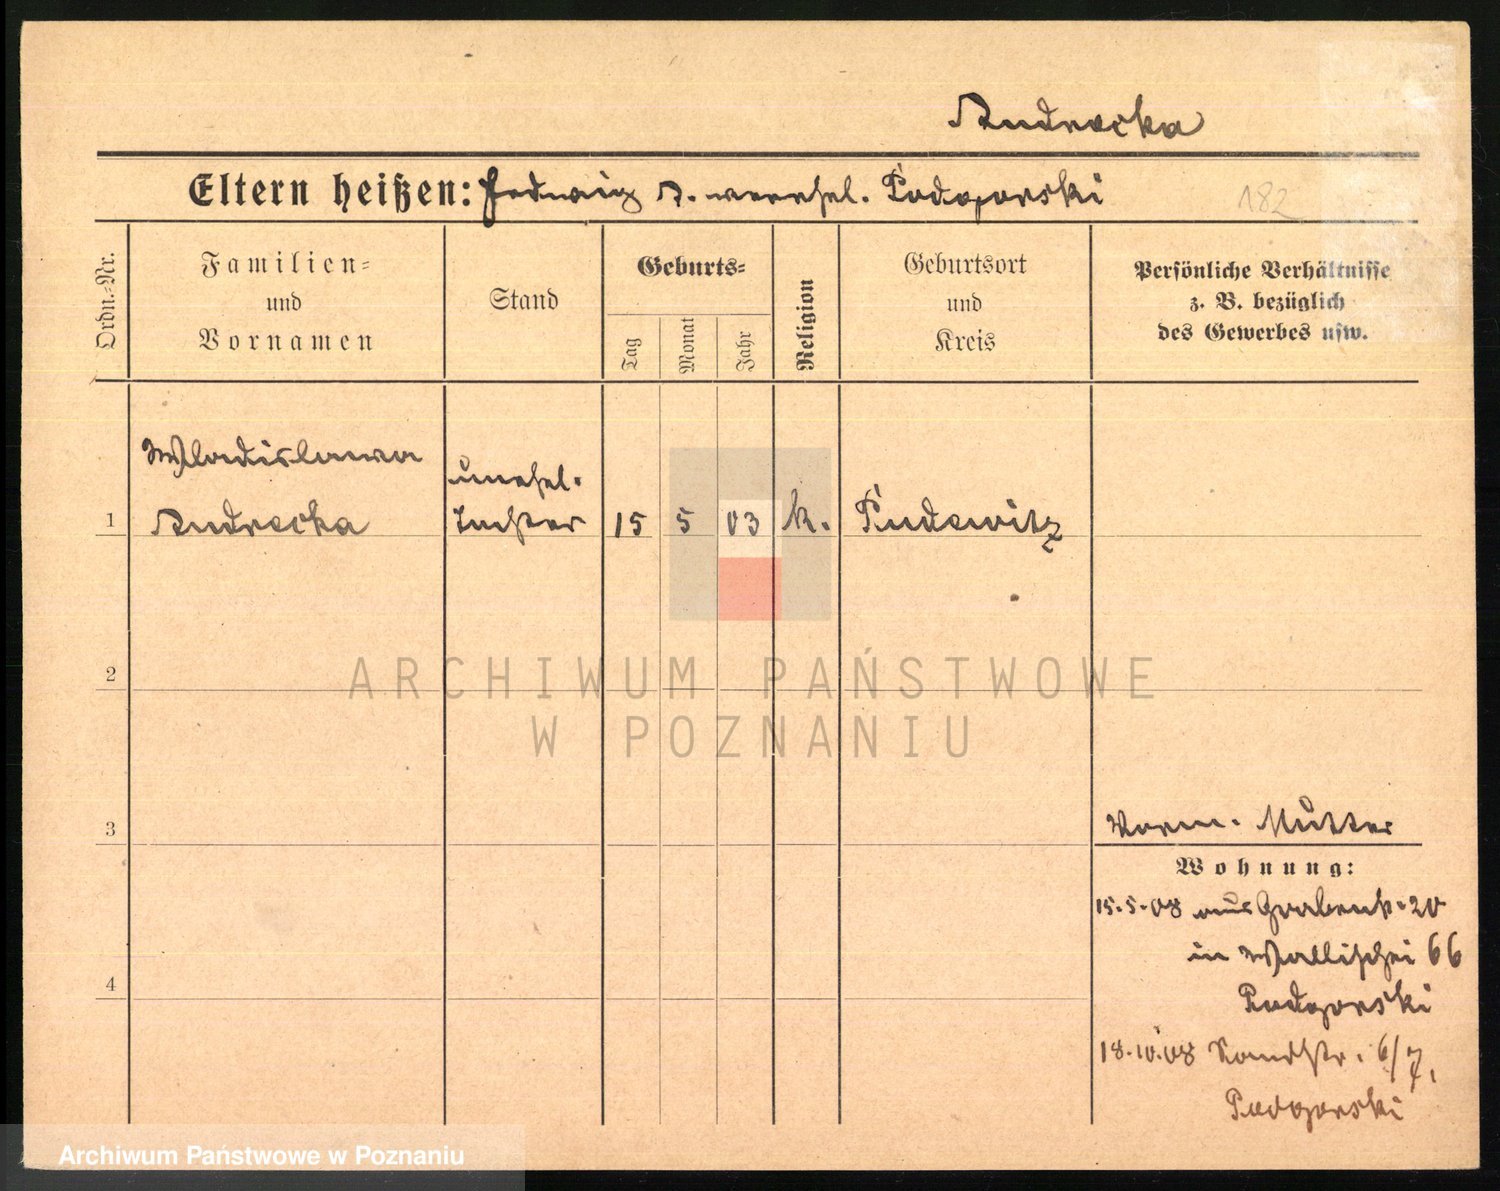 Andrecka
Eltern heißen: Hedwig A. verehel. Podgorski
182
Ordn.-Nr.
Familien-
und
Vornamen
Stand
Geburts-
Tag
Monat
Jahr
Religion
Geburtsort
und
Kreis
Persönliche Verhältnisse
z. B. bezüglich
des Gewerbes usw.
Wladislawa
unehel.
1 Andrecka Tochter 15 5 03 k. Pudewitz
2
ARCHIWUM PAŃSTWOWE
W POZNANIU
3
Vorm. Mutter
Wohnung:
15.5.08 aus Grabenstr. 20
in Wallischei 66
4
Podgorski
18.10.08 Sandstr. 6/7,
Podgorski
Archiwum Państwowe w Poznaniu